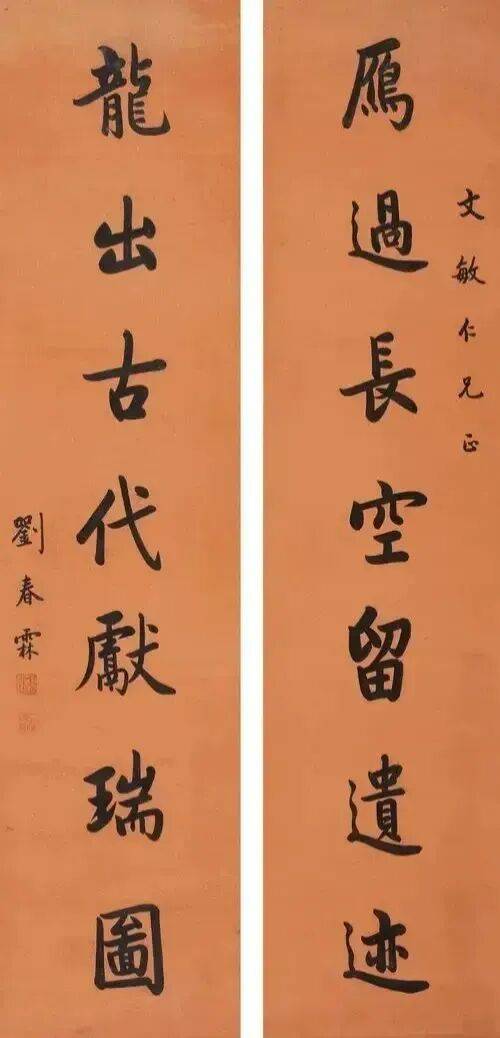 文敏仁兄正
雁過長空留遺迹
龍出古代獻瑞圖
劉春霖